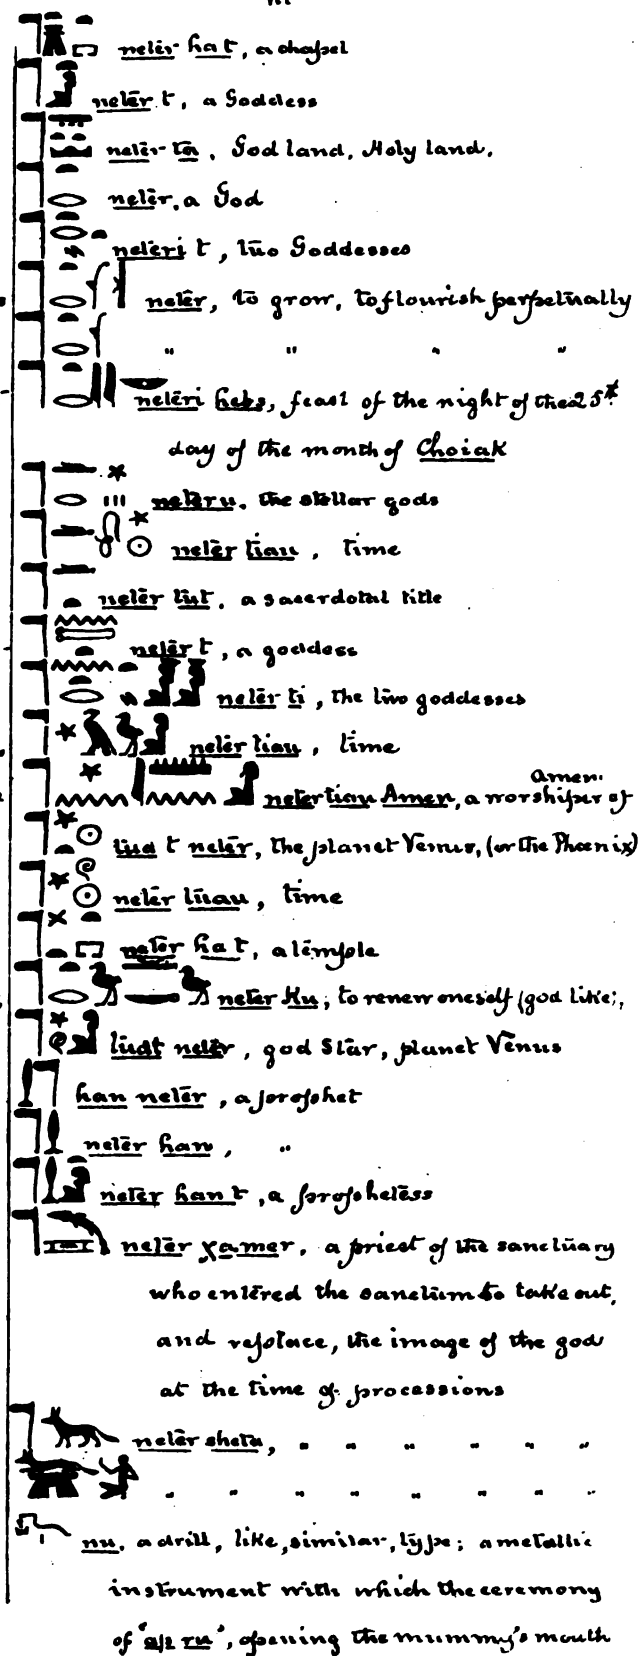 neter hat, a chapel
neter t, a Goddess
neter ta, God land, Holy land.
neter, a God
neteri t, two Goddesses
neter, to grow, to flourish perpetually
" " " "
neteri hebs, feast of the night of the 25th
day of the month of Choiak
neteru, the stellar gods
neter tiau, time
neter tut, a sacerdotal title
neter t, a goddess
neter ti, the two goddesses
neter tiau, time
Amen.
neter tiau Amen, a worshiper of
tua t neter, the planet Venus, (or the Phœnix)
neter tuau, time
neter hat, a temple
neter Ku, to renew oneself (god like;,
tuat neter, god Star, planet Venus
han neter, a prophet
neter han, "
neter han t, a prophetess
neter χamer, a priest of the sanctuary
who entered the sanctum to take out,
and replace, the image of the god
at the time of processions
neter sheta, " " " " " "
" " " " " " "
nu, a drill, like, similar, type; a metallic
instrument with which the ceremony
of "ap ru", opening the mummy's mouth